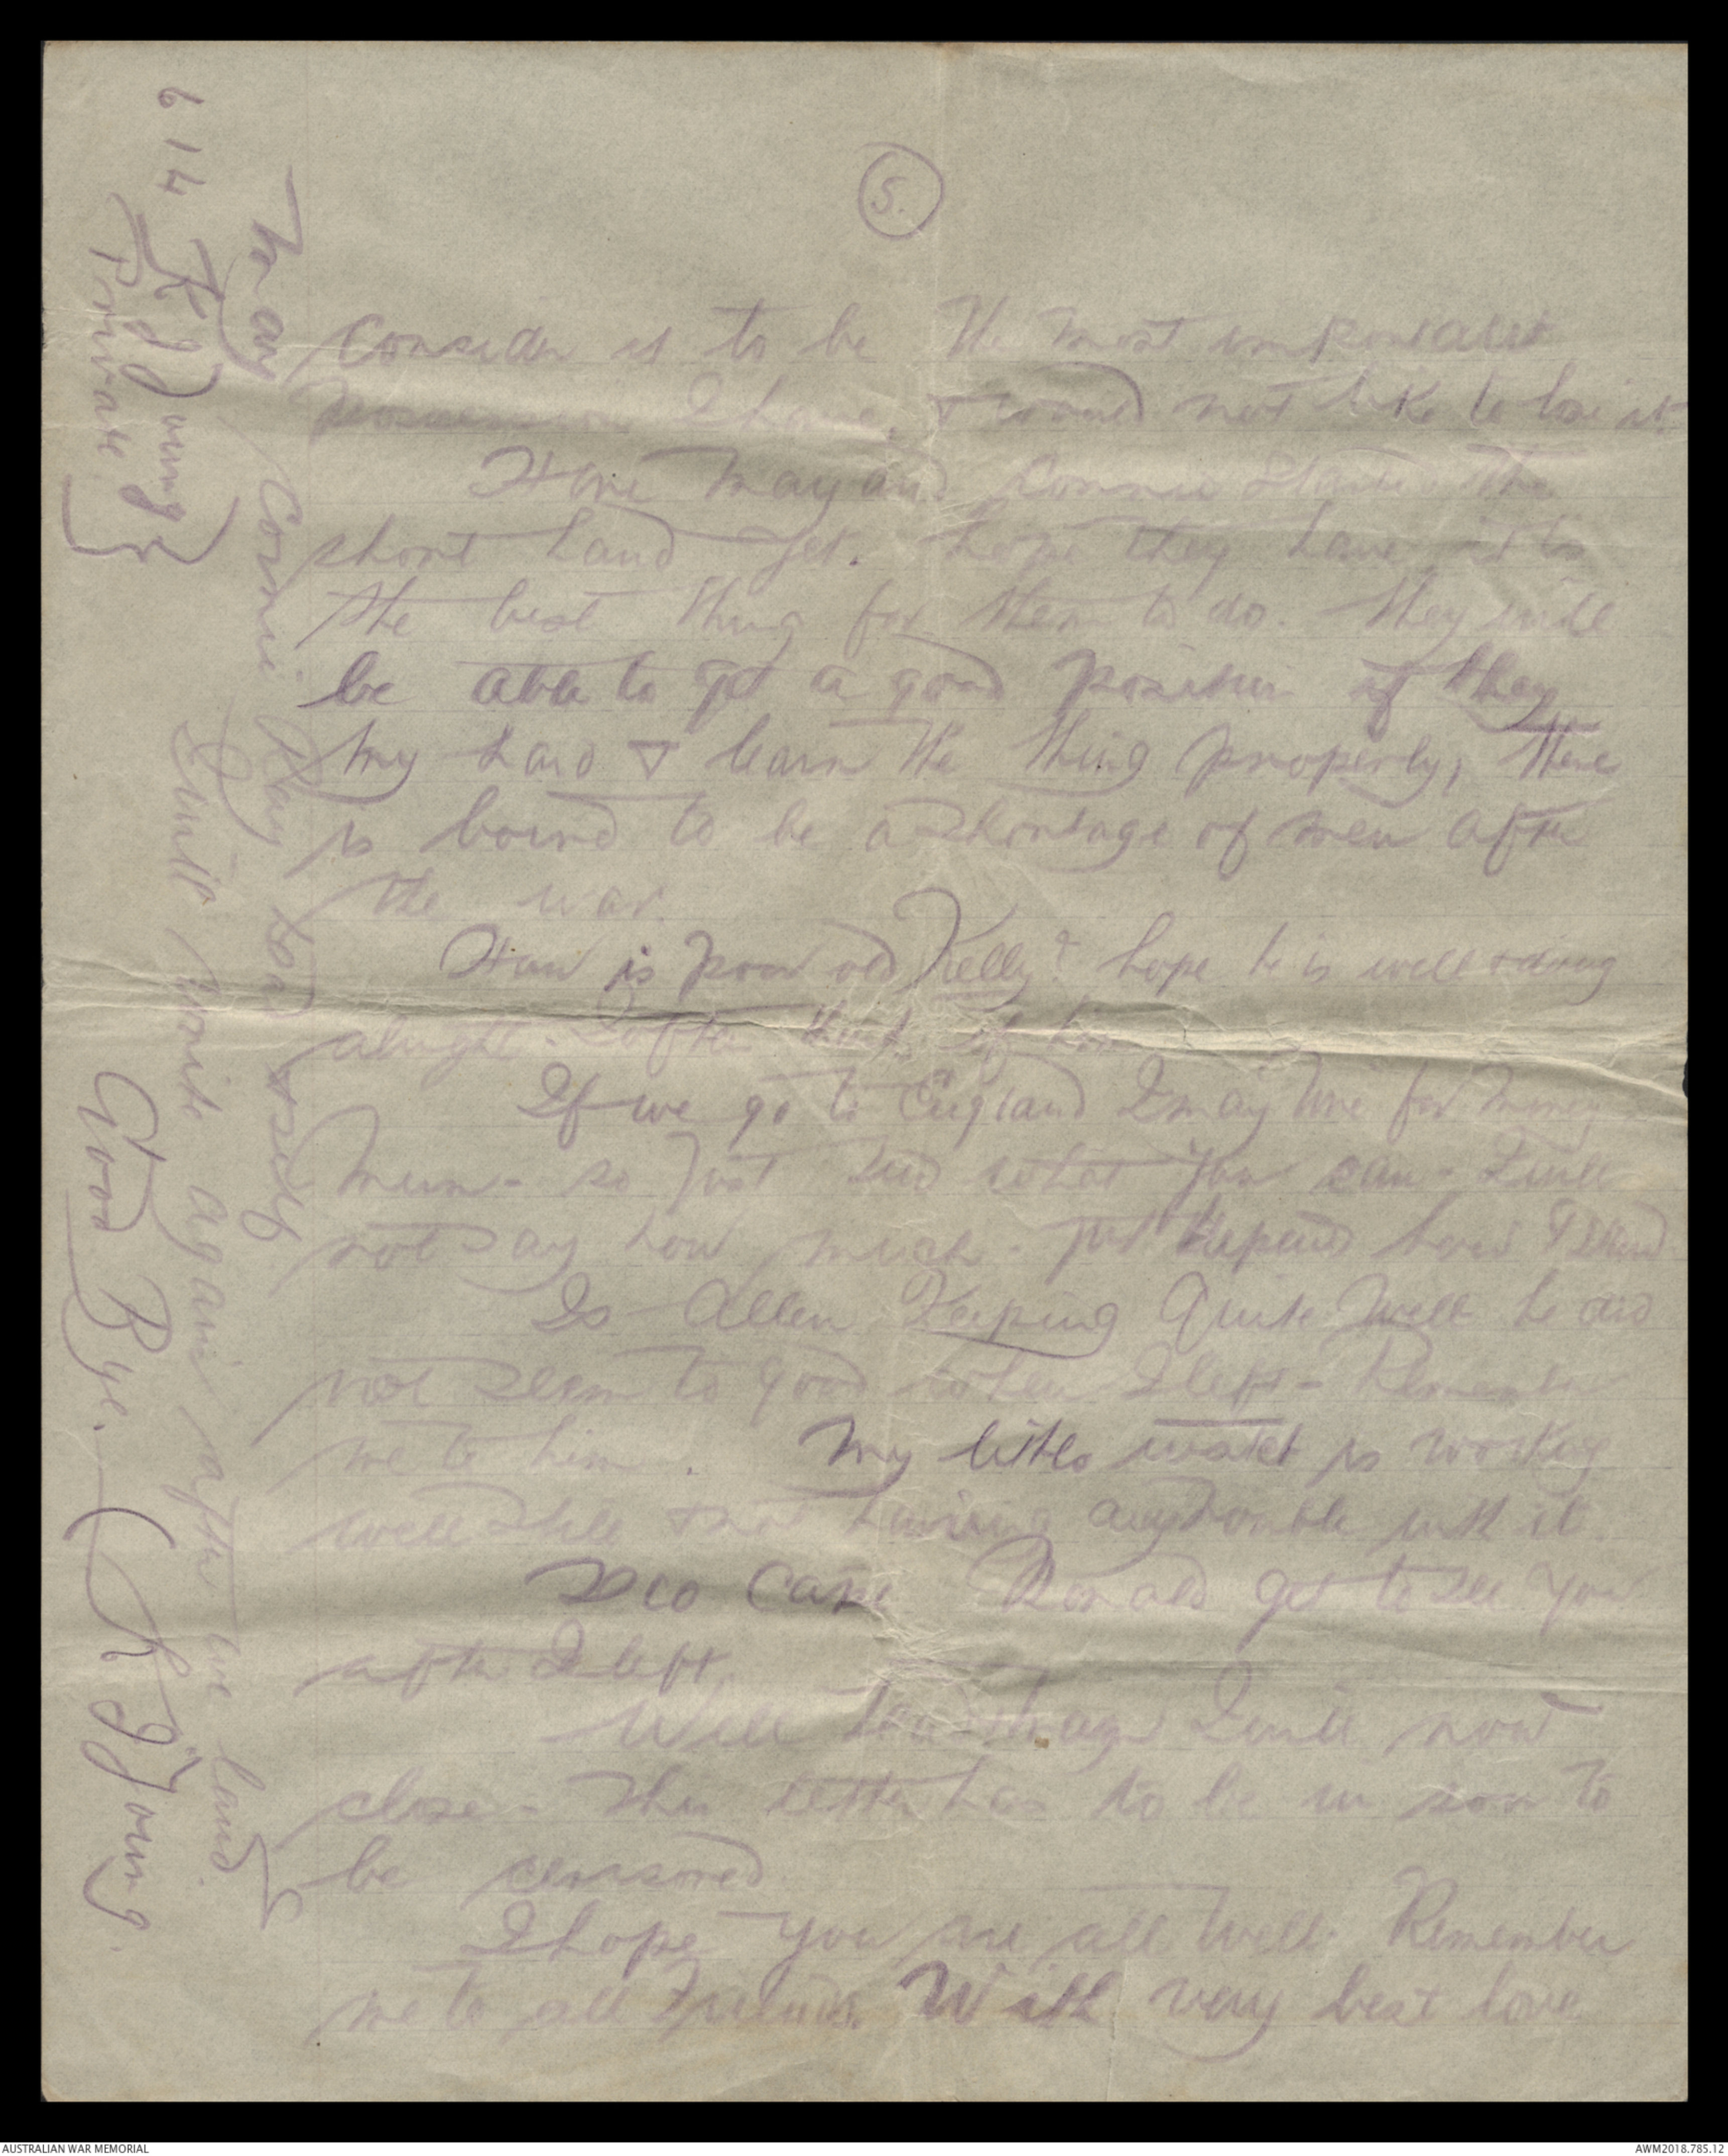 5.
consider it to be the most important
possession I have, & would not like to lose it.
Have May and Connie started the
short hand yet. hope they have it is
the best thing for them to do. they will
be able to get a good position if they
try hard & learn the thing properly, there
is bound to be a shortage of men after
the war.
How is poor old Kelly? hope he is well & doing
alright. I often think of him
If we go to England I may wire for money
Mum - so just send what you can - I will
not say how much - just depends how I stand
Is Allen Keeping Quite Well he did
not seem to good when I left - Remember
me to him. My little watch is working
well still & not having any trouble with it.
Did Capt Ronald get to see you
after I left.
Well I will now
close - This letter has to be in soon to
be censored.
I hope you are all well. Remember
me to all friends. With very best love
to any Connie Ray Dad & self
I will write again after we land.
Good Bye. R J Young.
614 R J Young
Private
AUSTRALIAN WAR MEMORIAL
AWM2018.785.12